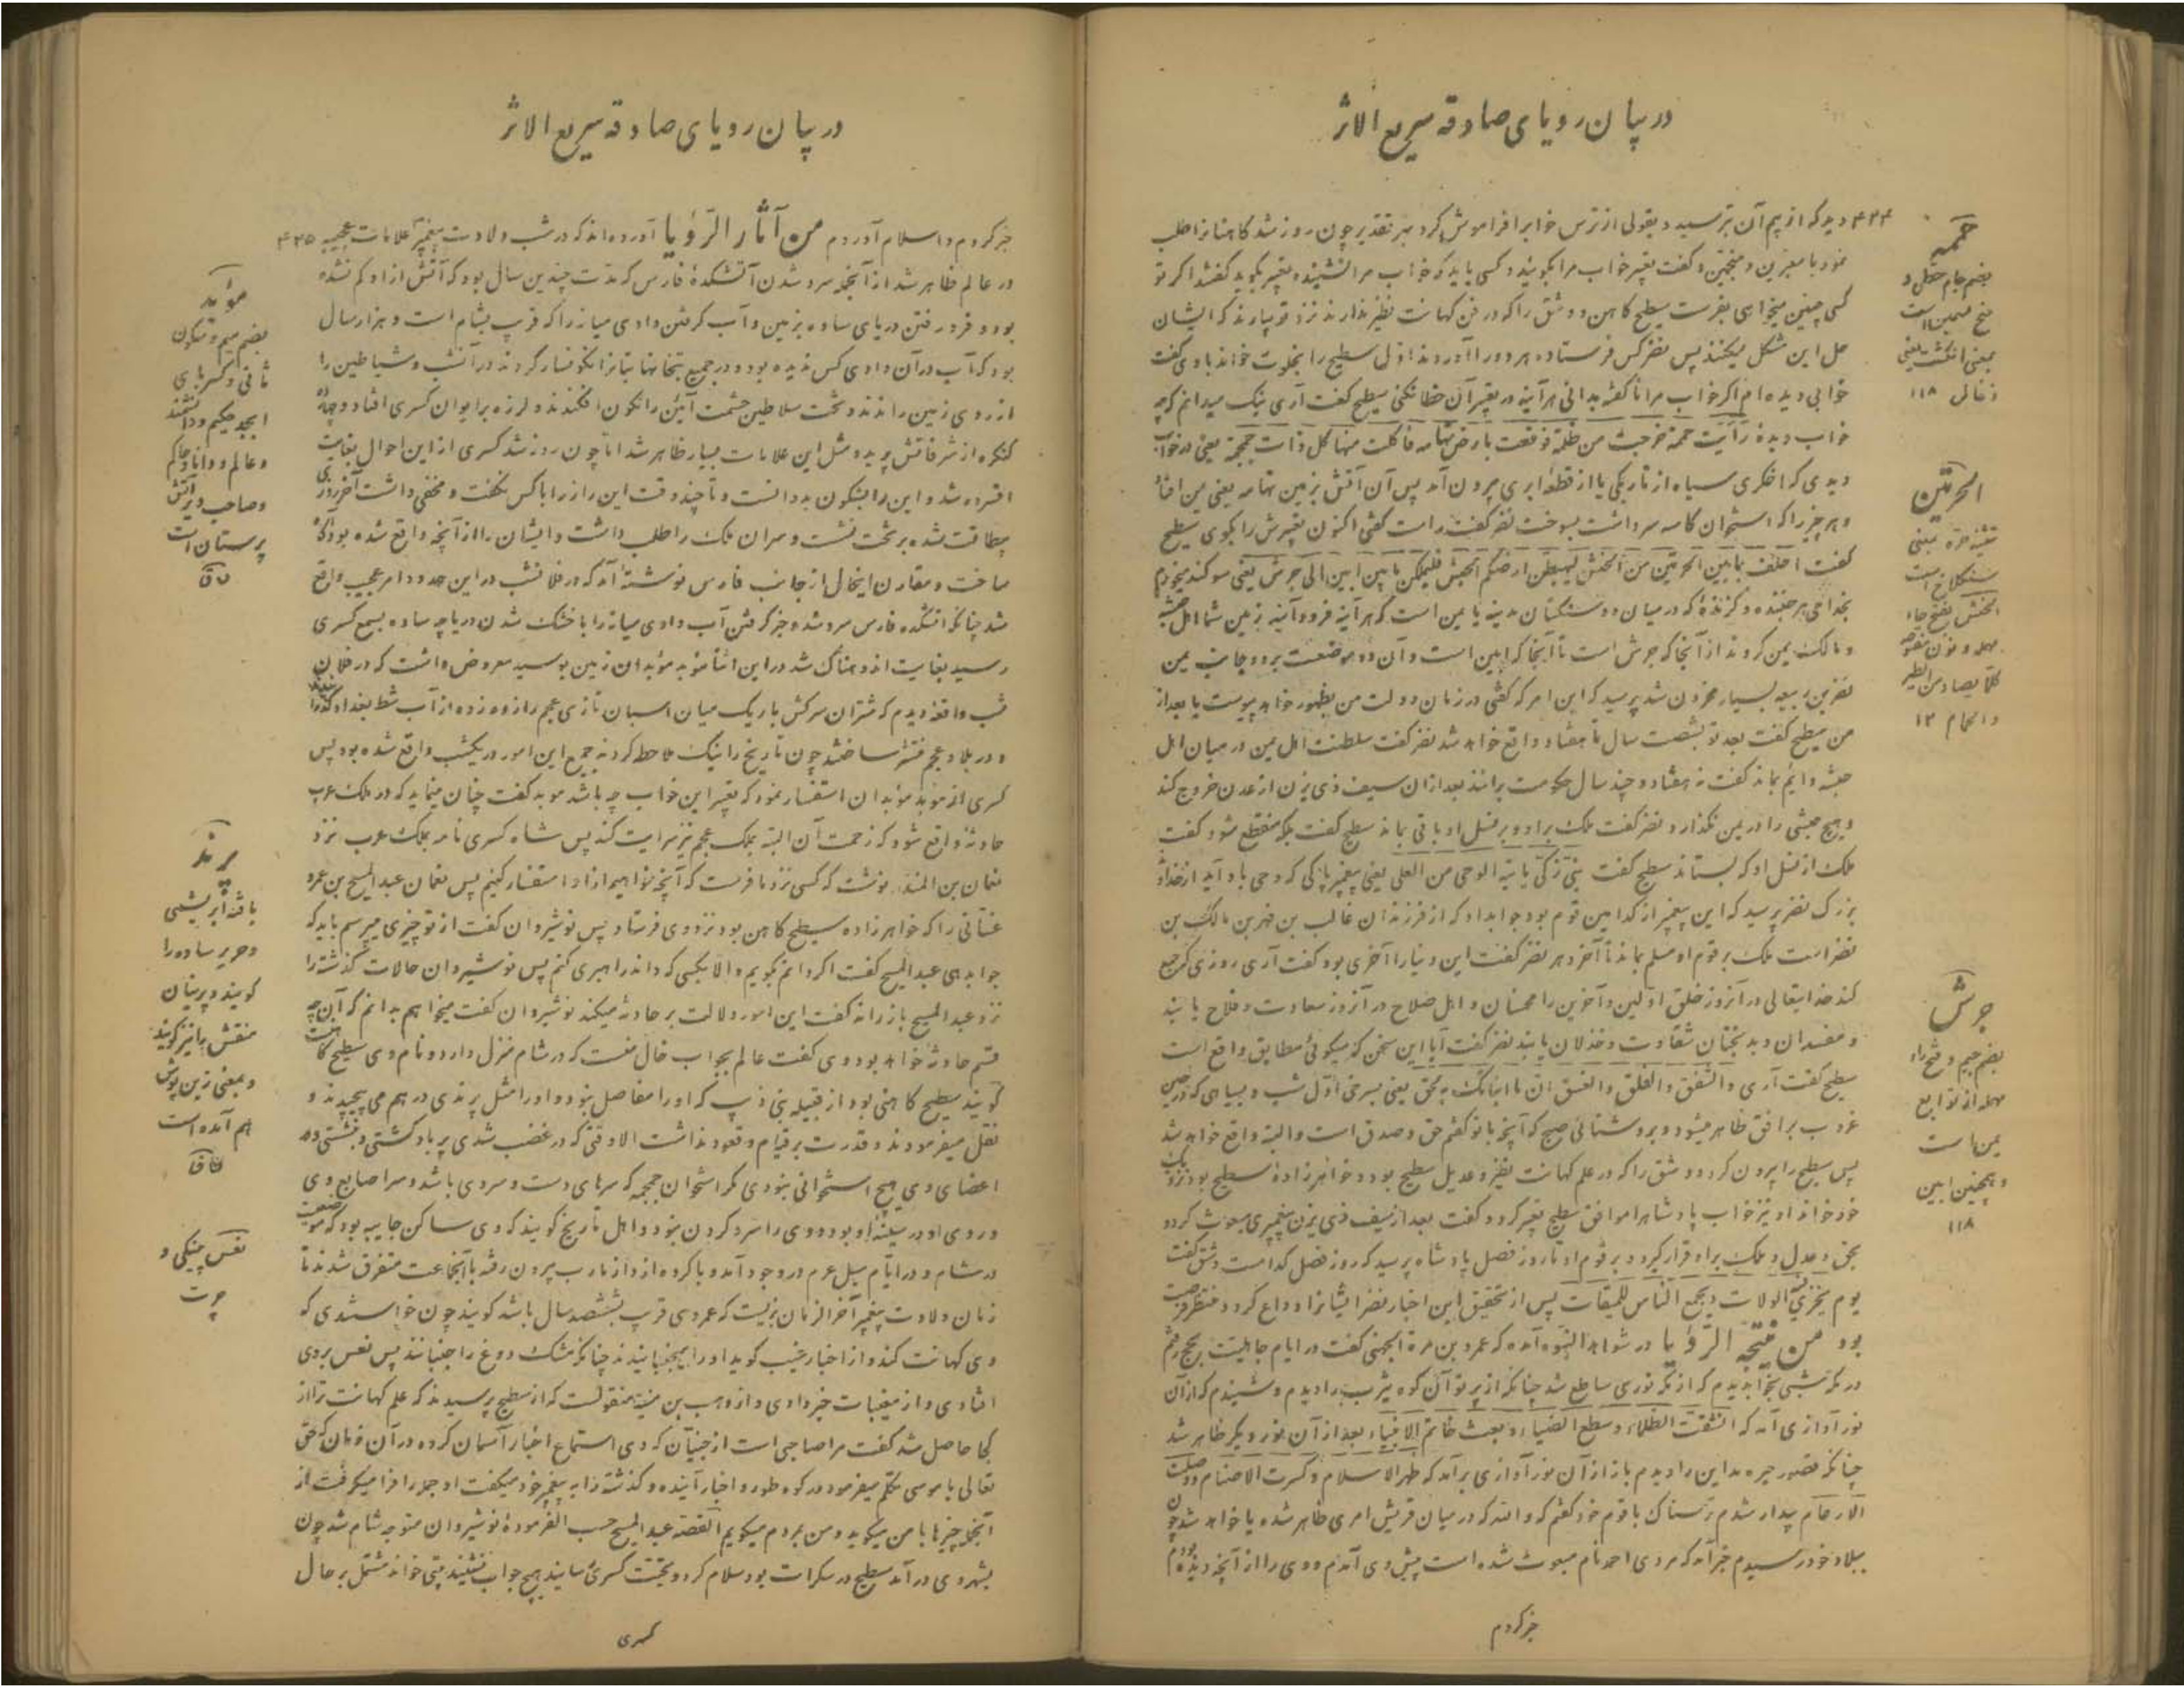 در بیان رویای صادقه سریع الاثر
۴۲۴ دید که از بیم آن بترسید و بقولی از ترس خواب را فراموش کرد بهر تقدیر چون روز شد کاهنان را طلب
نمود با معبرین و منجمین و گفت تعبیر خواب مرا بگویند و کسی باید که خواب مرا نشنیده تعبیر بگوید گفتند اگر تو
کسی چنین میخواهی بفرست سطیح کاهن و شق را که در فن کهانت نظیر ندارند نزد تو بیارند که ایشان
حل این مشکل میکنند پس نضر کس فرستاده هر دو را آوردند اول سطیح را بخلوت خواند با وی گفت
خوابی دیده ام اگر خواب مرا ناگفته بدانی هر آینه در تعبیر آن خطا نکنی سطیح گفت آری نیک میدانم که چه
خواب دیدۀ رأیت حممة خرجت من ظلمة فوقعت بارض تهامه فاکلت منها کل ذات جمجمة یعنی در خواب
دیدی که اخگری سیاه از تاریکی یا از قطعه ابری بیرون آمد پس آن آتش بزمین تهامه یعنی یمن افتاد
و هر چیز را که استخوان کاسه سر داشت بسوخت نضر گفت راست گفتی اکنون تعبیرش را بگوی سطیح
گفت احلف بما بین الحرتین من الحنش لیهبطن ارضکم الحبش فلیملکن ما بین ابین الی جرش یعنی سوگند میخورم
بخدای هر جنبنده و گزندۀ که در میان دو سنگستان مدینه یا یمن است که هر آینه فرود آیند زمین شما اهل حبشه
و مالک یمن گردند از آنجا که جرش است تا آنجا که ابین است و آن دو موضعست بر دو جانب یمن
نضر بن ربیعه بسیار محزون شد پرسید که این امر که گفتی در زمان دولت من بظهور خواهد پیوست یا بعد از
من سطیح گفت بعد تو بشصت سال تا هفتاد واقع خواهد شد نضر گفت سلطنت اهل یمن در میان اهل
حبشه دایم بماند گفت نه هفتاد و چند سال حکومت برانند بعد از آن سیف ذی یزن از عدن خروج کند
و هیچ حبشی را در یمن نگذارد نضر گفت ملک براو و بر نسل او باقی بماند سطیح گفت بلکه منقطع شود گفت
ملک از نسل او که بستاند سطیح گفت نبی زکی یاتیه الوحی من العلی یعنی پیغمبر پاکی که وحی باو آید از خدای
بزرک نضر پرسید که این پیغمبر از کدامین قوم بود جواب داد که از فرزندان غالب بن فهر بن مالک بن
نضر است ملک بر قوم او مسلم بماند تا آخر دهر نضر گفت این دنیا را آخری بود گفت آری روزی که جمع
کند خدایتعالی در آنروز خلق اولین و آخرین را محسنان و اهل صلاح در آنروز سعادت و فلاح یابند
و مفسدان و بدبختان شقاوت و خذلان یابند نضر گفت آیا این سخن که میگوئی مطابق واقع است
سطیح گفت آری و الشفق و الفلق و الغسق ان ما انبأتک به لحق یعنی بسرخی اول شب و بسیاهی که در حین
غروب بر افق ظاهر میشود و بروشنائی صبح که آنچه با تو گفتم حق و صدق است و البته واقع خواهد شد
پس سطیح را بیرون کرد و شق را که در علم کهانت نظیر و عدیل سطیح بود و خواهرزادۀ سطیح بود نزد
خود خواند او نیز خواب پادشاه را موافق سطیح تعبیر کرد و گفت بعد از سیف ذی یزن پیغمبری مبعوث گردد
بحق و عدل و ملک براو قرار گیرد و بر قوم او تا روز فصل پادشاه پرسید که روز فصل کدامست شق گفت
یوم یجزی الولات و یجمع الناس للمیقات پس از تحقیق این اخبار نضر ایشانرا وداع کرد و منتظر
بود من نتیجة الرؤیا در شواهد النبوه آمده که عمرو بن مرة الجهنی گفت در ایام جاهلیت بحج رفتم
در مکه شبی بخواب دیدم که از مکه نوری ساطع شد چنانکه از پرتو آن کوه یثرب را دیدم و شنیدم که از آن
نور آوازی آمد که انشقت الظلماء و سطع الضیاء و بعث خاتم الانبیاء بعد از آن نور دیگر ظاهر شد
چنانکه قصور حیره مداین را دیدم باز از آن نور آوازی برآمد که ظهر الاسلام و کسرت الاصنام و وصلت
الارحام بیدار شدم ترسناک با قوم خود گفتم که والله که در میان قریش امری ظاهر شده یا خواهد شد چون
ببلاد خود رسیدم خبر آمد که مردی احمد نام مبعوث شده است پیش وی آمدم و وی را از آنچه دیده بودم
خبر کردم
حممه
بضم جام حطی و
فتح میمین است
بمعنی انگشت یعنی
زغال ۱۱۸
الحرتین
تثنیه حره بمعنی
سنگلاخ است
الحنش بفتح حاء
مهمله و نون مفتوحه
کلما یصاد من الطیر
و الهوام ۱۲
جرش
بضم جیم و فتح راء
مهمله از توابع
یمن است
و همچنین ابین
۱۱۸
در بیان رویای صادقه سریع الاثر
خبر کردم و اسلام آوردم من آثار الرؤیا آورده اند که در شب ولادت پیغمبر علامات عجیبه ۴۲۵
در عالم ظاهر شد از آنجمله سرد شدن آتشکدۀ فارس که مدت چندین سال بود که آتش از او کم نشده
بود و فرو رفتن دریای ساوه بزمین و آب گرفتن وادی سیاه را که قرب بشام است و هزار سال
بود که آب در آن وادی کس ندیده بود و در جمیع بتخانها بتانرا نگونسار کردند در آنشب و شیاطین را
از روی زمین راندند و تخت سلاطین حشمت آئین را نگون افکندند و لرزه بر ایوان کسری افتاد و چهارده
کنگره از شرفاتش پرید و مثل این علامات بسیار ظاهر شد اما چون روز شد کسری از این احوال بغایت
افسرده شد و این را بشگون بد دانست و تا چند وقت این راز را با کس نگفت و مخفی داشت آخر روزی
بیطاقت شده بر تخت نشست و سران ملک را طلب داشت و ایشان را از آنچه واقع شده بود آگاه
ساخت و مقارن اینحال از جانب فارس نوشته آمد که در فلانشب در این حدود امر عجیب واقع
شد چنانکه آتشکده فارس سرد شد و خبر گرفتن آب وادی سیاه را با خشک شدن دریاچه ساوه بسمع کسری
رسید بغایت اندوهناک شد در این اثنا مؤبد مؤبدان زمین بوسید معروض داشت که در فلان
شب واقعه دیدم که شتران سرکش باریک میان اسبان تازی عجم را زده زده از آب شط بغداد گذرانیدند
و در بلاد عجم منتشر ساختند چون تاریخ را نیک ملاحظه کردند جمیع این امور در یکشب واقع شده بود پس
کسری از مؤبد مؤبدان استفسار نمود که تعبیر این خواب چه باشد موبد گفت چنان مینماید که در ملک عرب
حادثه واقع شود که زحمت آن البته بملک عجم نیز سرایت کند پس شاه کسری نامه بملک عرب نزد
نعمان بن المنذر نوشت که کسی نزد ما فرست که آنچه خواهیم از او استفسار کنیم پس نعمان عبد المسیح بن عمرو
غسانی را که خواهرزاده سطیح کاهن بود نزد وی فرستاد پس نوشیروان گفت از تو چیزی میپرسم باید که
جواب دهی عبد المسیح گفت اگر دانم بگویم والا بکسی که داند راهبری کنم پس نوشیروان حالات گذشته را
نزد عبد المسیح باز راند گفت این امور دلالت بر حادثه میکند نوشیروان گفت میخواهم بدانم که آن چه
قسم حادثۀ خواهد بود وی گفت عالم بجواب خال منست که در شام منزل دارد و نام وی سطیح است
گویند سطیح کاهنی بود از قبیله بنی ذیب که او را مفاصل نبود و او را مثل پرندی در هم می پیچیدند و
نقل میفرمودند و قدرت بر قیام و قعود نداشت الا وقتی که در غضب شدی پر باد گشتی و بنشستی و در
اعضای وی هیچ استخوانی نبودی مگر استخوان جمجمه که سرهای دست و سروی باشد و سر اصابع وی
و روی او در سینۀ او بود و وی را سر و گردن نبود و اهل تاریخ گویند که وی ساکن جابیه بود که موضعیست
در شام و در ایام سیل عرم در وجود آمد و با گروه ازد از مارب بیرون رفته با آنجماعت متفرق شدند تا
زمان ولادت پیغمبر آخر الزمان بزیست که عمر وی قرب ششصد سال باشد گویند چون خواستندی که
وی کهانت کند و از اخبار غیب گوید او را میجنبانیدند چنانکه مشک دوغ را جنبانند پس نفس بروی
افتادی و از مغیبات خبر دادی و از وهب بن منبه منقولست که از سطیح پرسیدند که علم کهانت ترا از
کجا حاصل شد گفت مرا صاحبی است از جنیان که وی استماع اخبار آسمان کرده در آن زمان که حق
تعالی با موسی تکلم میفرمود در کوه طور و اخبار آینده و گذشته را به پیغمبر خود میگفت او جمله را فرا میگرفت از
آنجمله چیزها با من میگوید و من بمردم میگویم القصه عبد المسیح حسب الفرمودۀ نوشیروان متوجه شام شد چون
بشهر وی در آمد سطیح در سکرات بود سلام کرد و تحیت کسری رسانید هیچ جواب نشنید بیتی خواند مشتمل بر حال
کسری
مؤبد
بضم میم و سکون
ثانی و کسر بای
ابجد حکیم و دانشمند
و عالم و دانا و حاکم
و صاحب دیر آتش
پرستان است
پرند
بافته ابریشمی
و حریر ساده را
گویند و پرنیان
منقش را نیز گویند
و بمعنی زین پوش
هم آمده است
نفس پینکی و
چرت